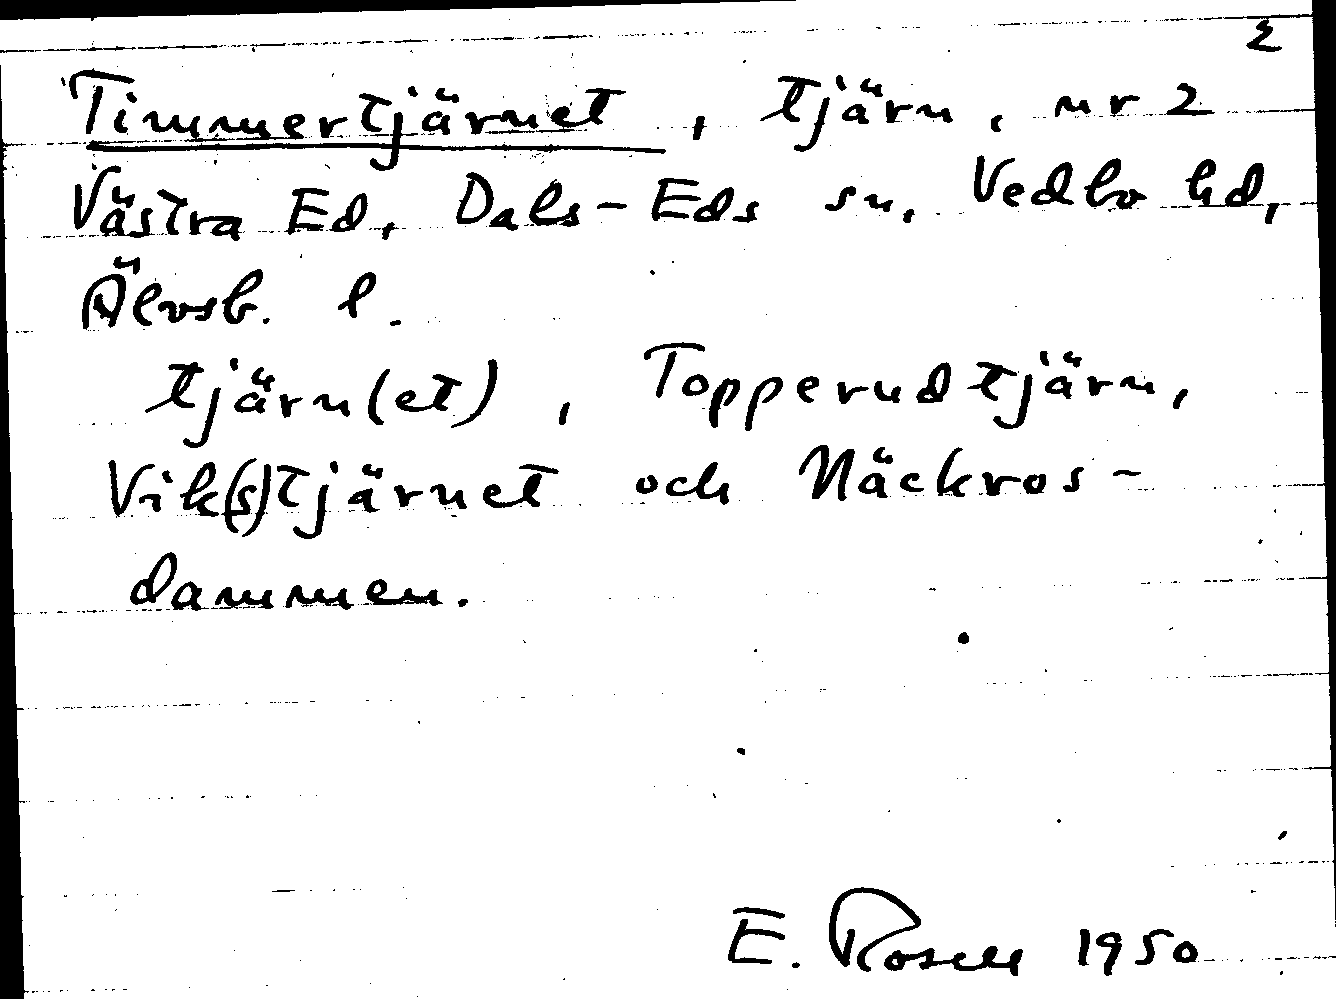 2
Timmertjärnet, tjärn, nr 2
Västra Ed, Dals-Eds sn, Vedbo hd,
Älvsb. l.
tjärn(et), Topperudtjärn,
Vik(s)tjärnet och Näckros-
dammen.
E. Rosell 1950